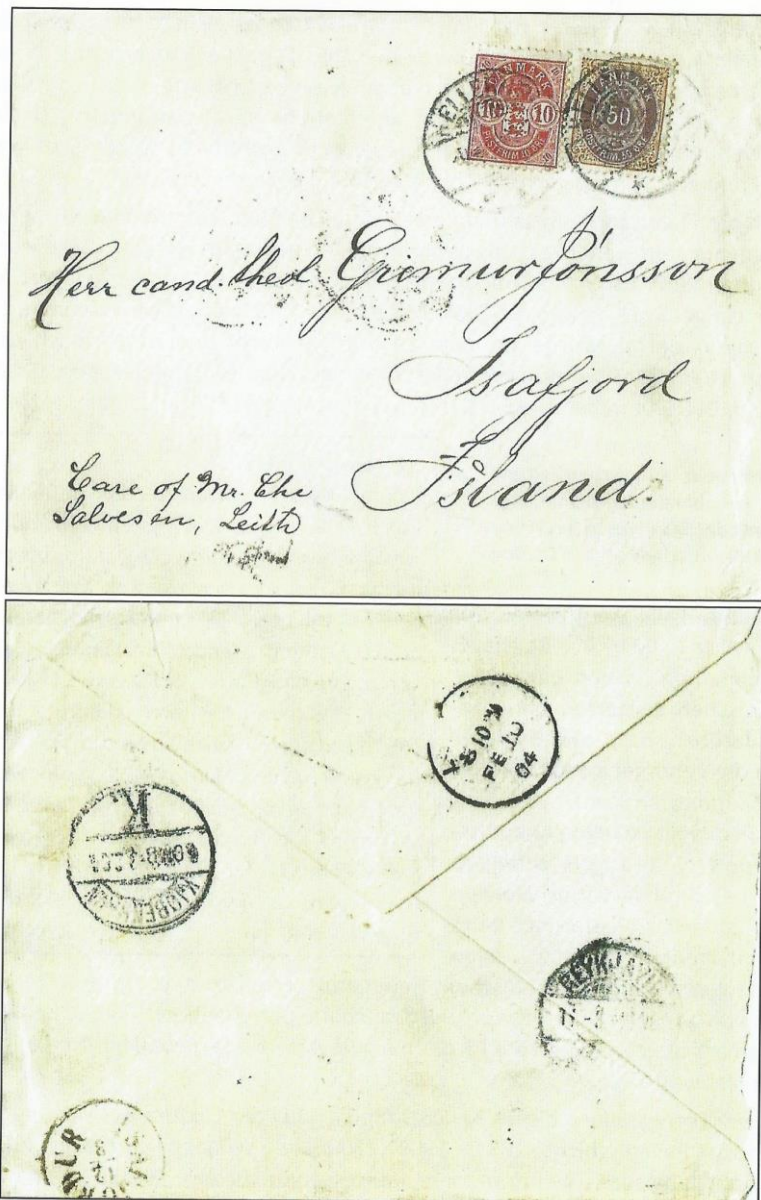 DANMARK
10 10
POSTFRIM. 10 ØRE
DANMARK
50
Herr cand. theol Grimur Jónsson
Isafjord
Island.
Care of Mr. Chr
Salvesen, Leith
8 10 PM
FE 10
04
K.
KJØBENHAVN
REYKJAVIK
ISAFJÖRÐUR
12
3